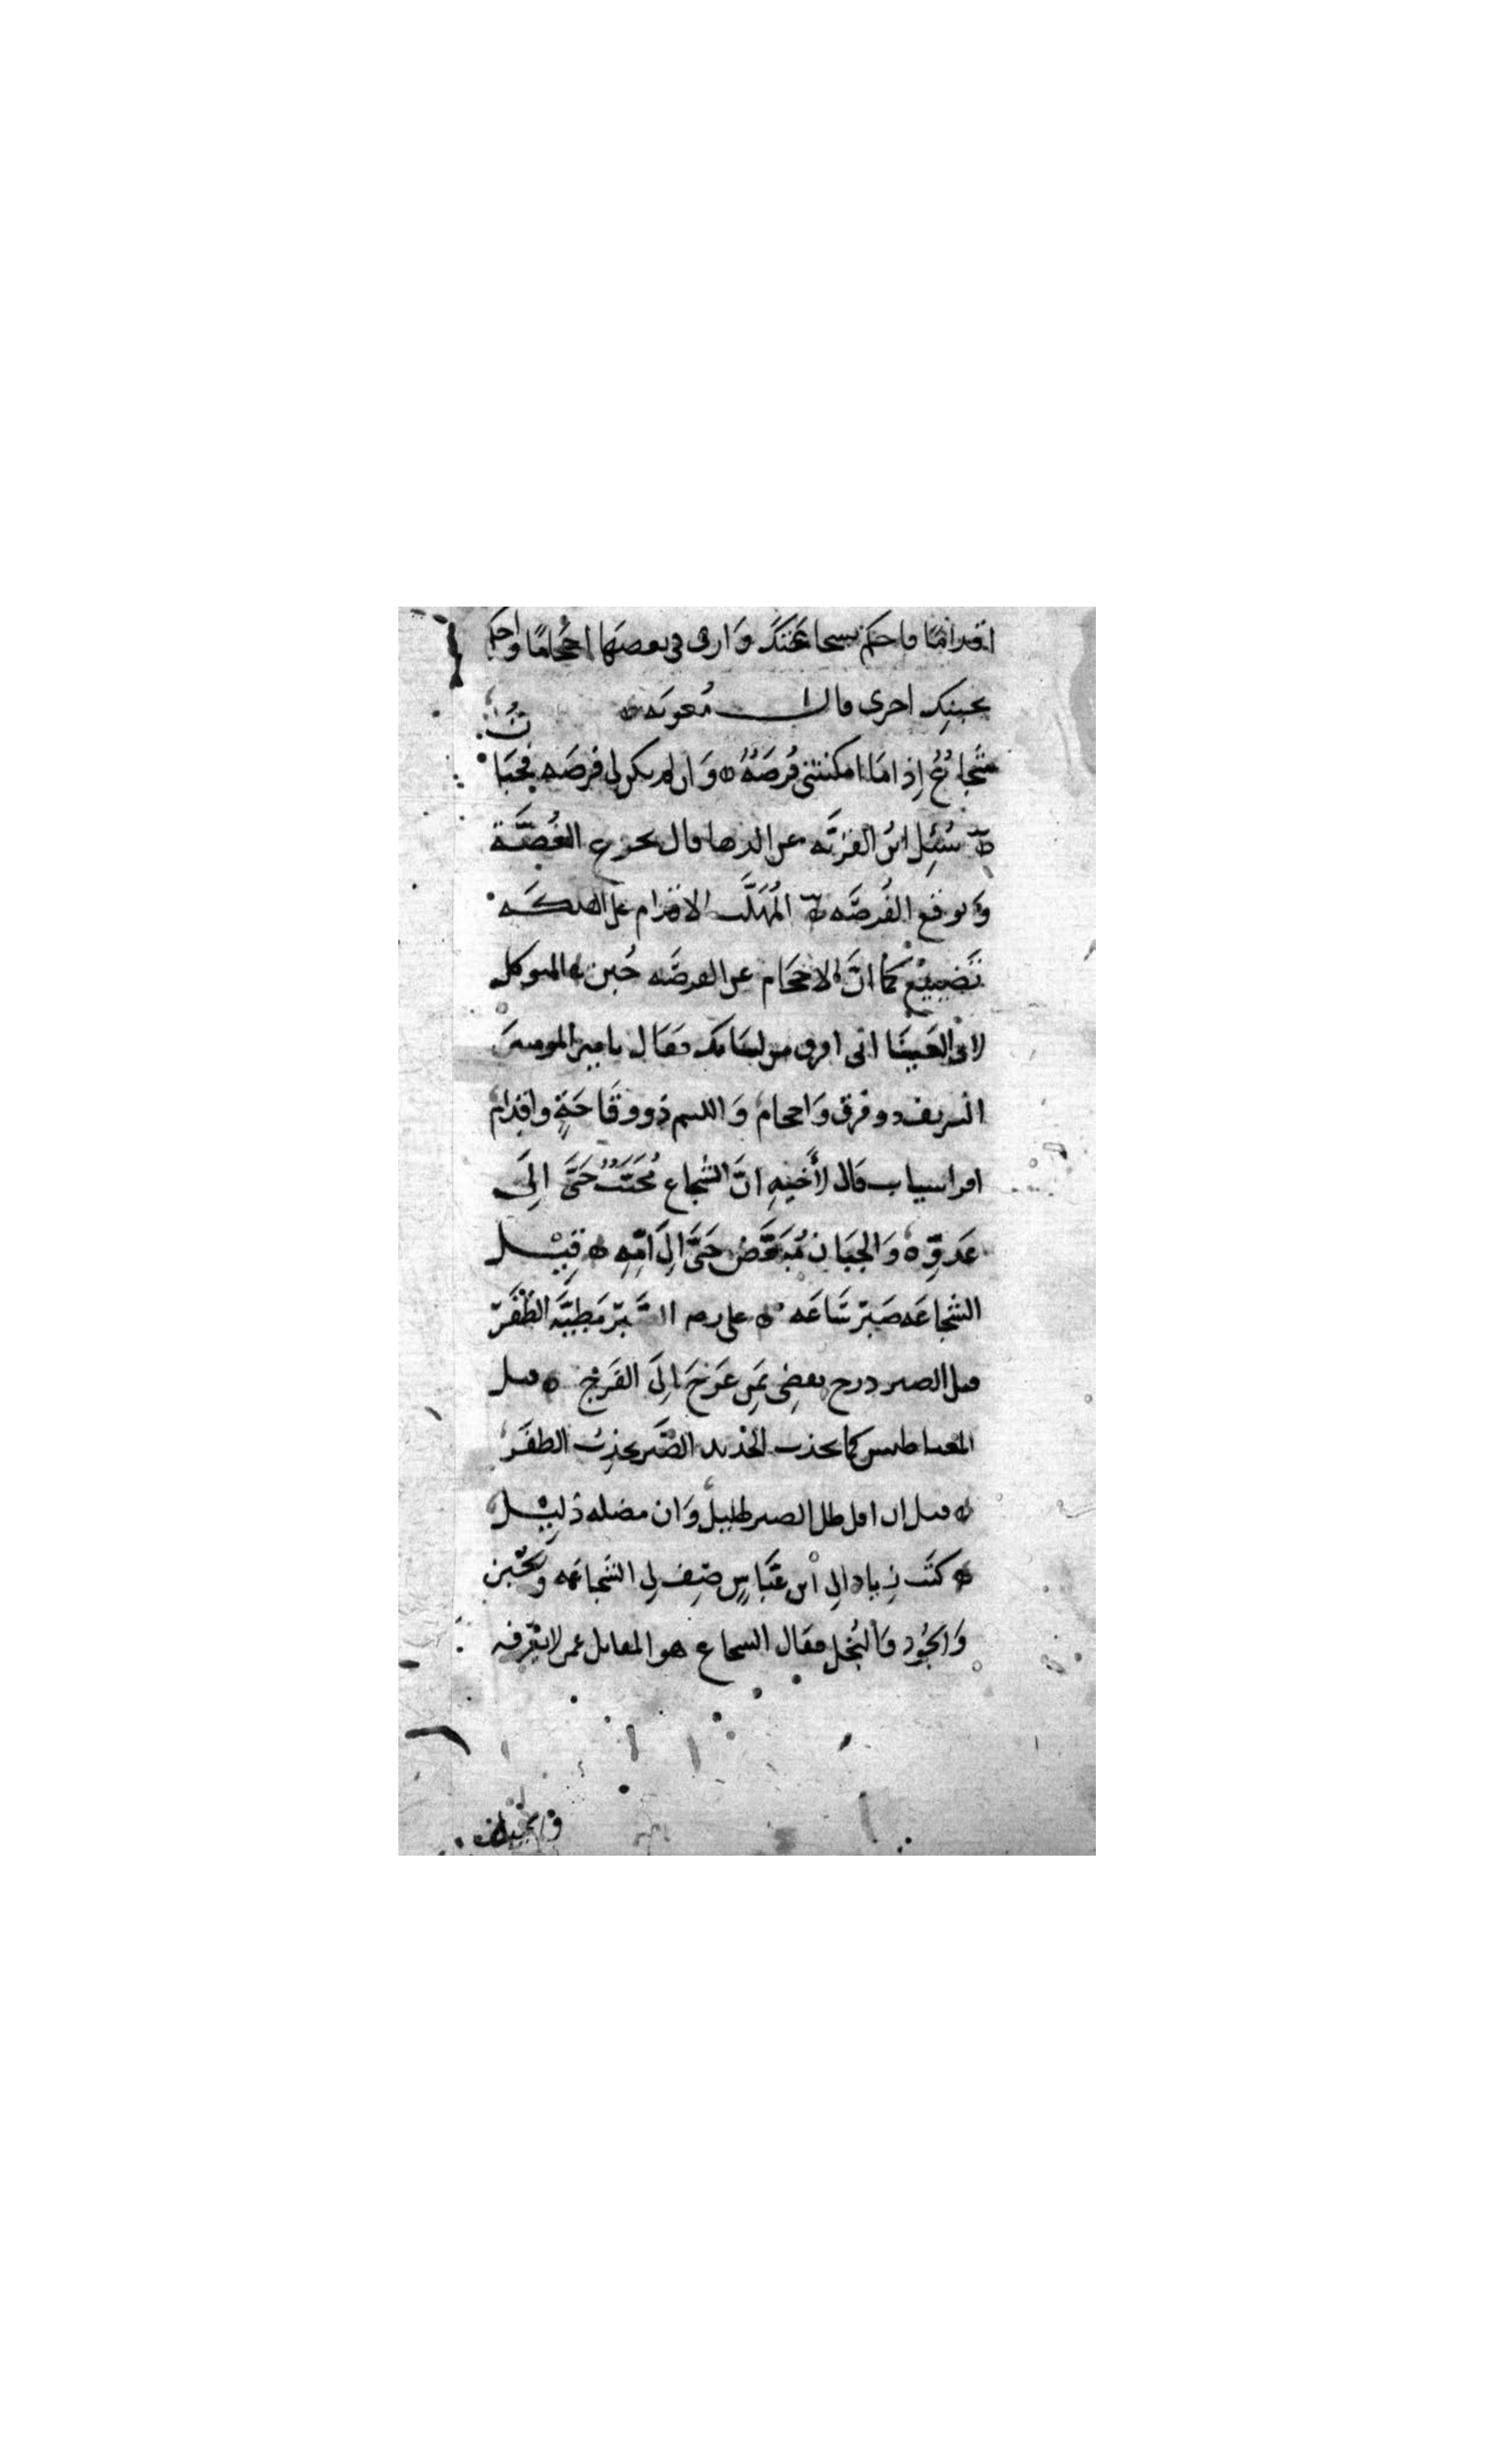 اقدامًا فاحكم بشجاعتك وارى في بعضها احجامًا واحكم
بجبنك اخرى قال معوية
شجاعٌ إذا ما امكنتني فرصةٌ وان لم يكن لي فرصة فجبان
سُئِل ابن القرية عن الدها قال تجرع الغُصّة
وتوقع الفُرصَه المُهَلَّب الاقدام على الهلكه
تضييع كما انّ الاحجام عن الفرصه جُبن المتوكل
لابي العَينَا اني افرق من لسانك فقال يا مير المومنين
الشريف ذو فرق واحجام واللئيم ذو وقاحةٍ واقدام
افراسياب قال لأخيه انّ الشجاع مُحَبَّبٌ حَتَّى إلَى
عدوّه والجبان مُبَغَّض حتَّى الى امّهِ قيل
الشجاعه صبر ساعه على رضه الصَّبر مَطِيَّه الظَّفَر
قيل الصبر درج يفضي بمن عَرَجَ الى الفَرَج قيل
المغناطيس كما يجذب الحديد الصَّبر يجذب الظفر
قيل ان اقل ظل الصبر ظليل وان مضله ذليل
كتَب زياد الى ابن عبّاسٍ صِف لي الشجاعه والجبن
والجُود والبُخل فقال الشجاع هو المقاتل عمن لا يعرفه
والجبان